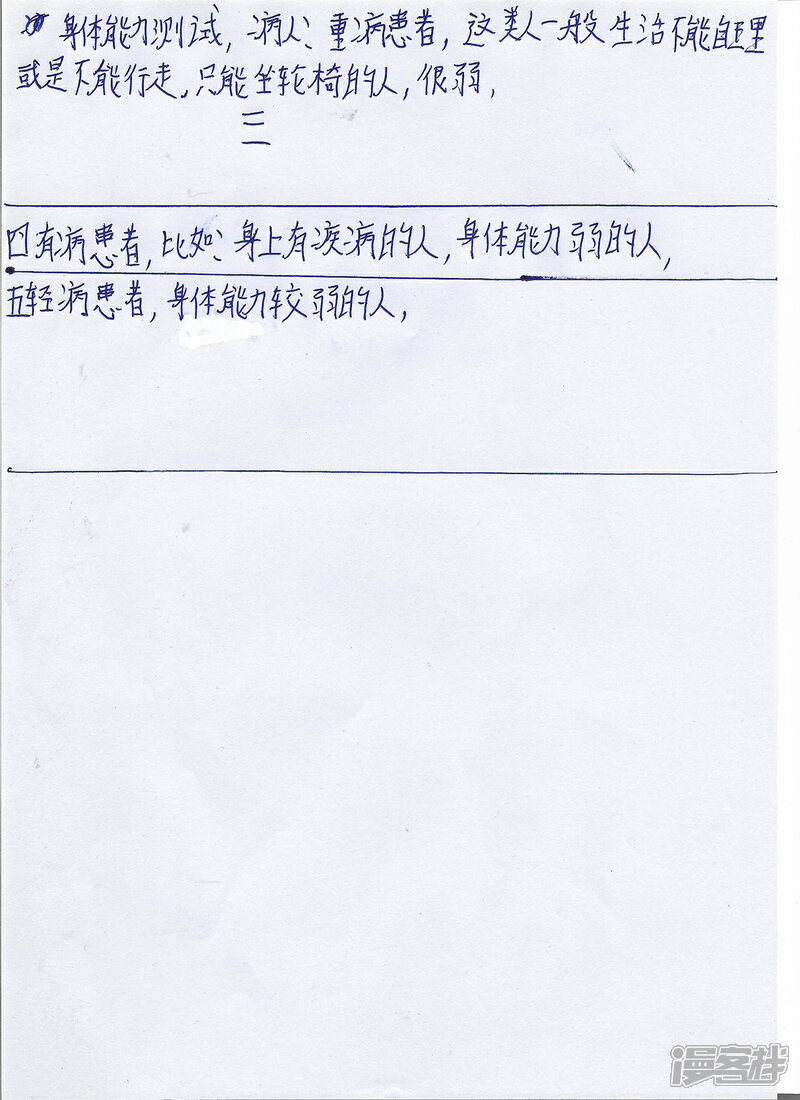 身体能力测试，病人、重病患者，这类人一般生活不能自理
或是不能行走，只能坐轮椅的人，很弱，
三
四有病患者，比如、身上有疾病的人，身体能力弱的人，
五轻病患者，身体能力较弱的人，
漫客栈